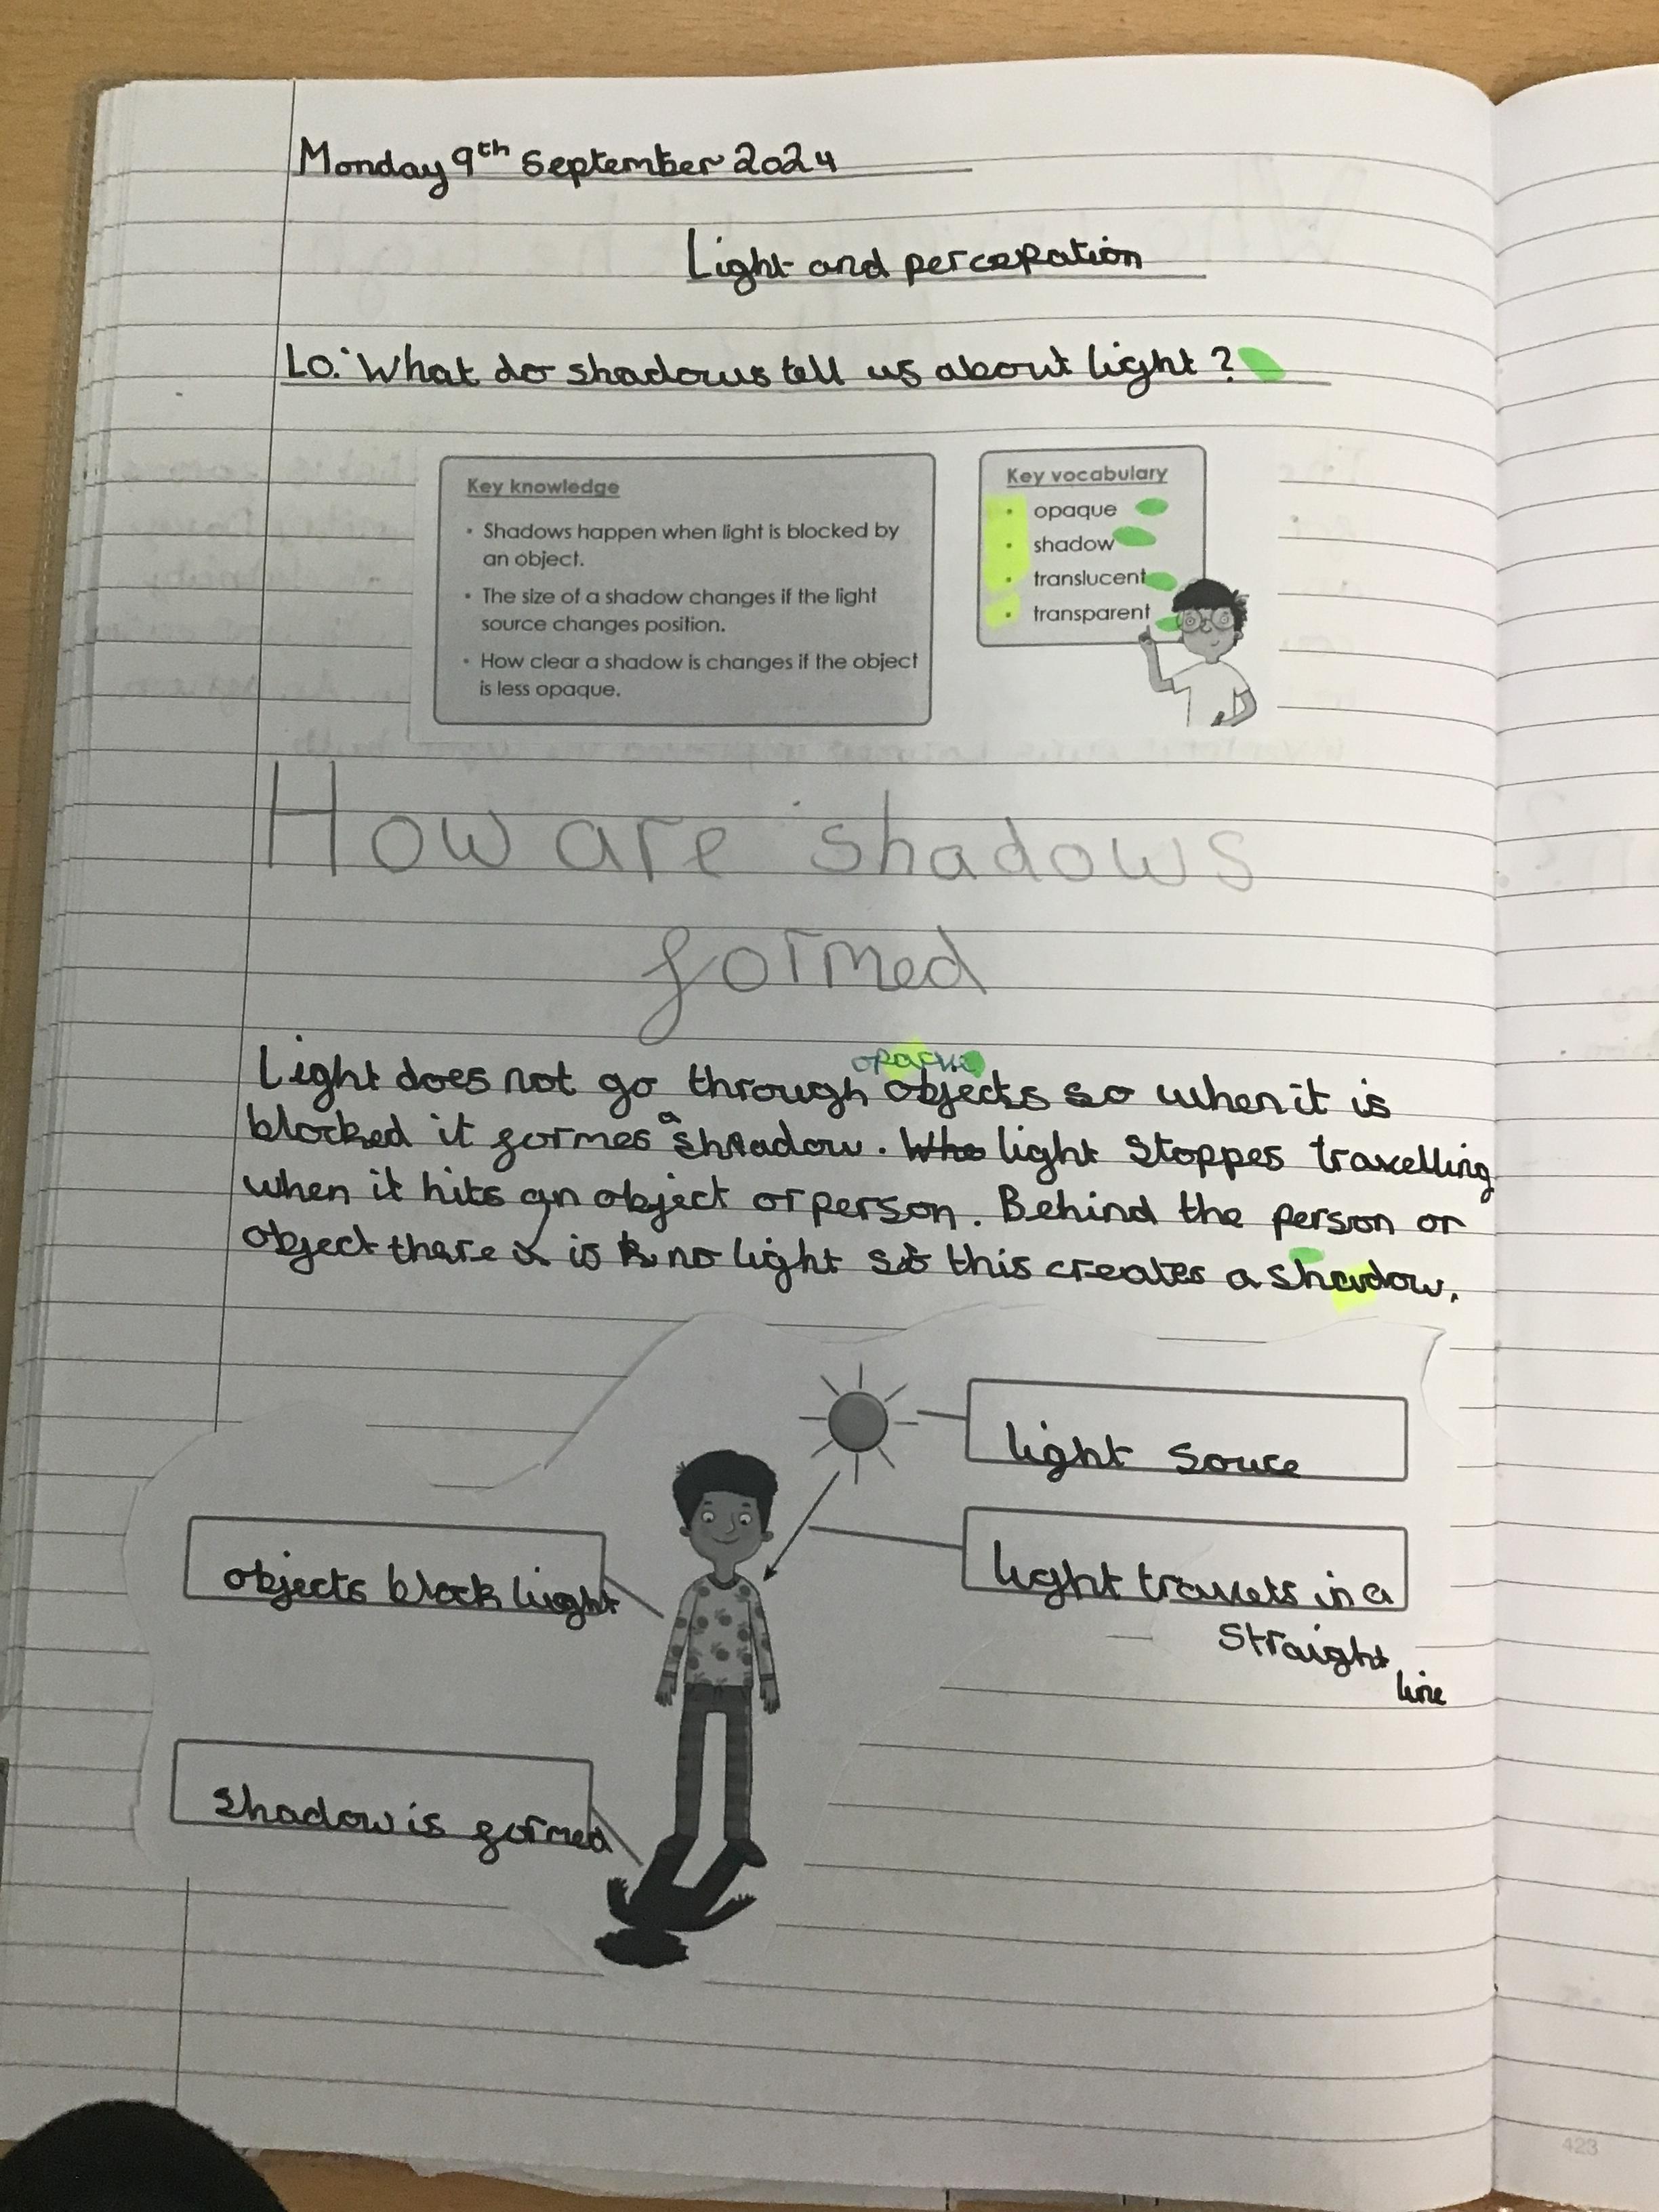 Monday 9th September 2024
Light and percepration
LO: What do shadows tell us about light?
Key knowledge
• Shadows happen when light is blocked by
an object.
• The size of a shadow changes if the light
source changes position.
• How clear a shadow is changes if the object
is less opaque.
Key vocabulary
• opaque
• shadow
• translucent
• transparent
How are shadows
formed
opaque
Light does not go through objects so when it is
blocked it formes a shadow. Who light stoppes travelling
when it hits an object or person. Behind the person or
object there is no light so this creates a shadow.
light souce
light travels in a
straight
line
objects block light
shadow is formed
423